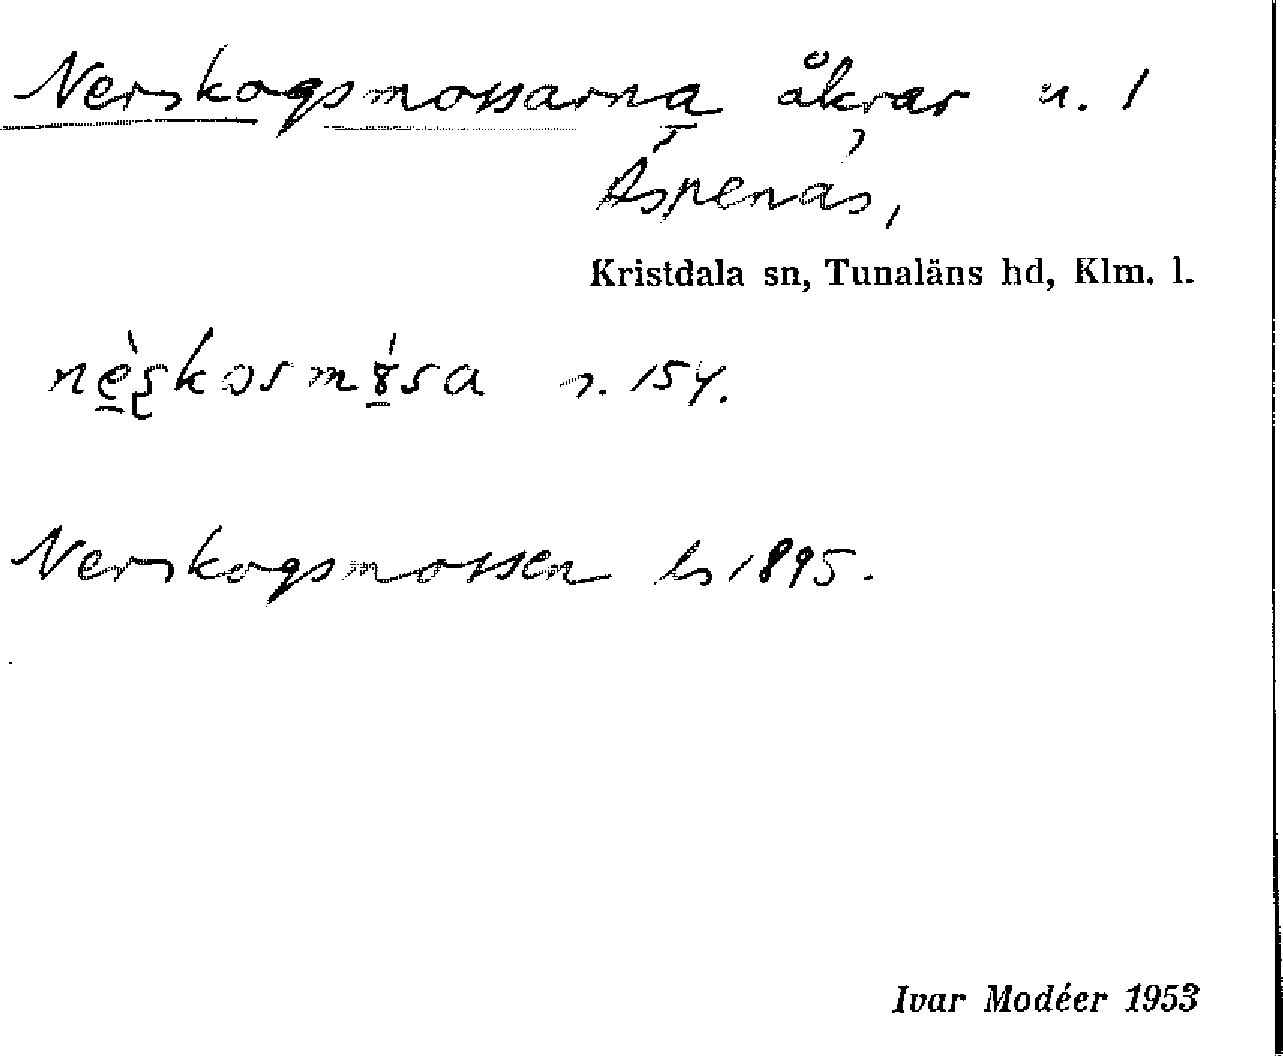 Nerskogsmossarna åkrar u. 1
Äspenäs,
Kristdala sn, Tunaläns hd, Klm. l.
s. 154.
Nerskogsmossen ls 1895.
Ivar Modéer 1953